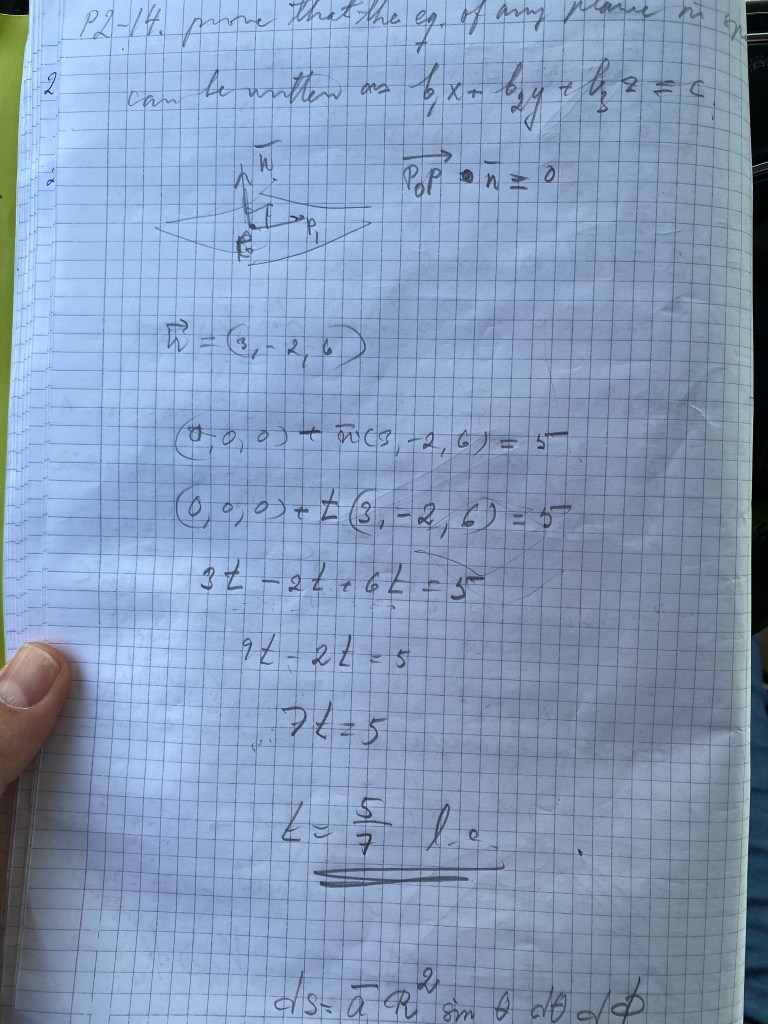 P2-14. prove that the eq. of any plane in
can be written as b₁x + b₂y + b₃z = c
n̄
P₀P • n̄ = 0
P₁
n⃗ = (3, -2, 6)
(0, 0, 0) + n̄ (3, -2, 6) = 5
(0, 0, 0) + t (3, -2, 6) = 5
3t - 2t + 6t = 5
9t - 2t = 5
7t = 5
t = 5/7 l.c.
ds = ā R² sin θ dθ dϕ